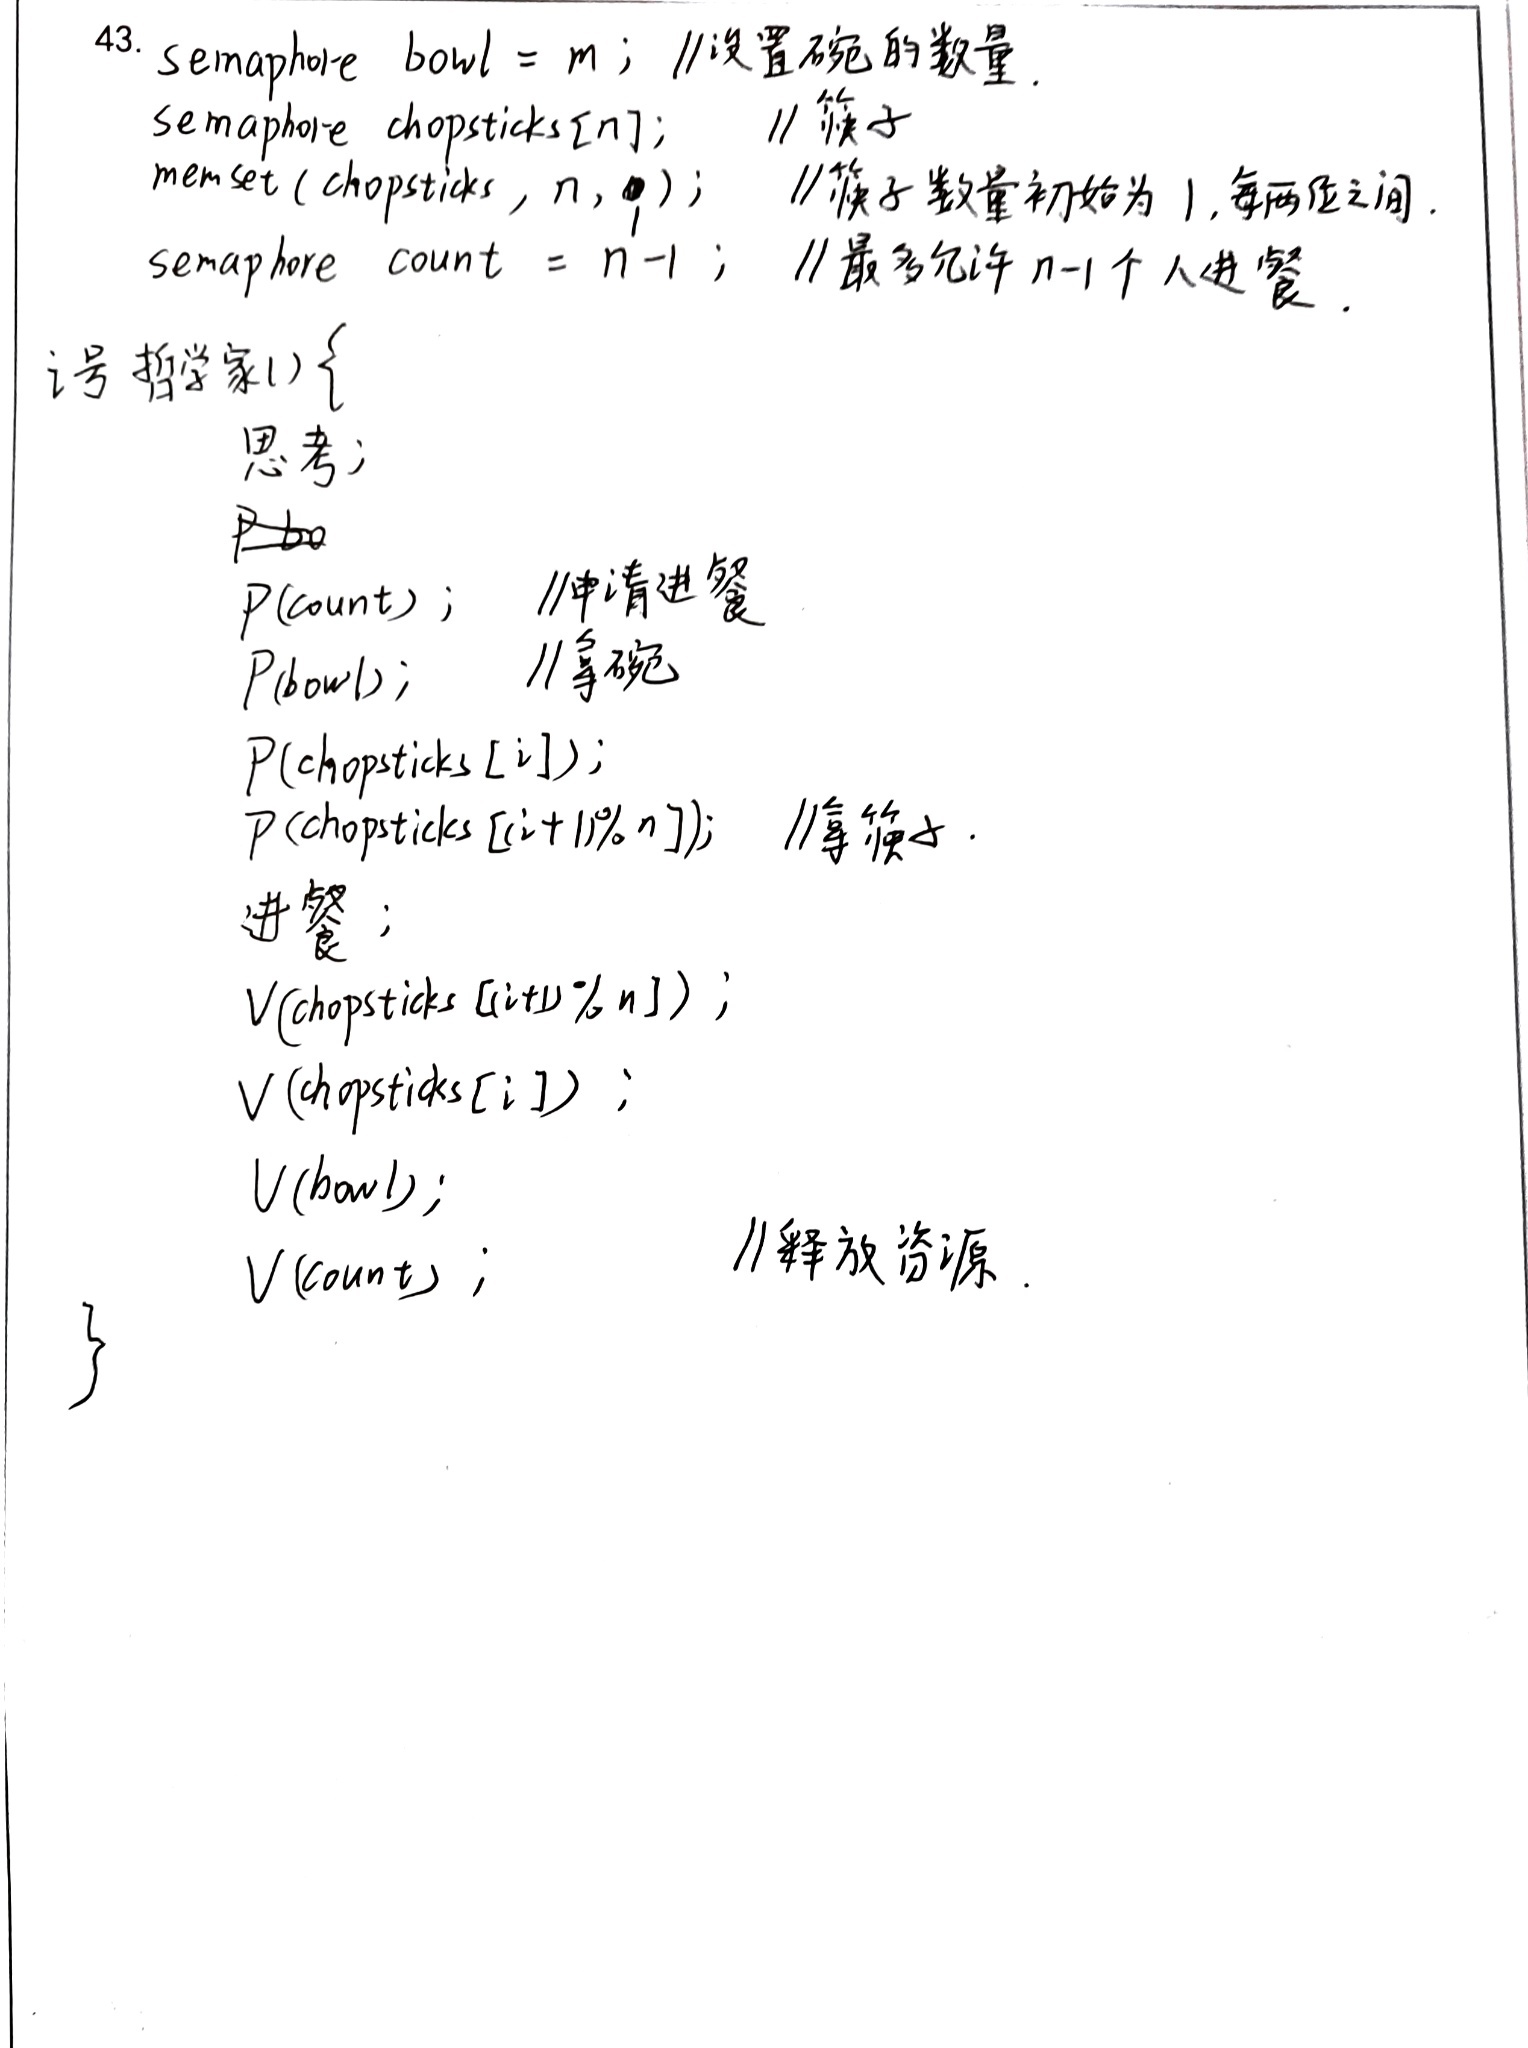 43. semaphore bowl = m; //设置碗的数量.
semaphore chopsticks[n]; //筷子
memset(chopsticks, n, 1); //筷子数量初始为1,每两位之间.
semaphore count = n-1; //最多允许n-1个人进餐.
i号哲学家(){
思考;
P bo
P(count); //申请进餐
P(bowl); //拿碗
P(chopsticks[i]);
P(chopsticks[(i+1)%n]); //拿筷子.
进餐;
V(chopsticks[(i+1)%n]);
V(chopsticks[i]);
V(bowl);
V(count); //释放资源.
}